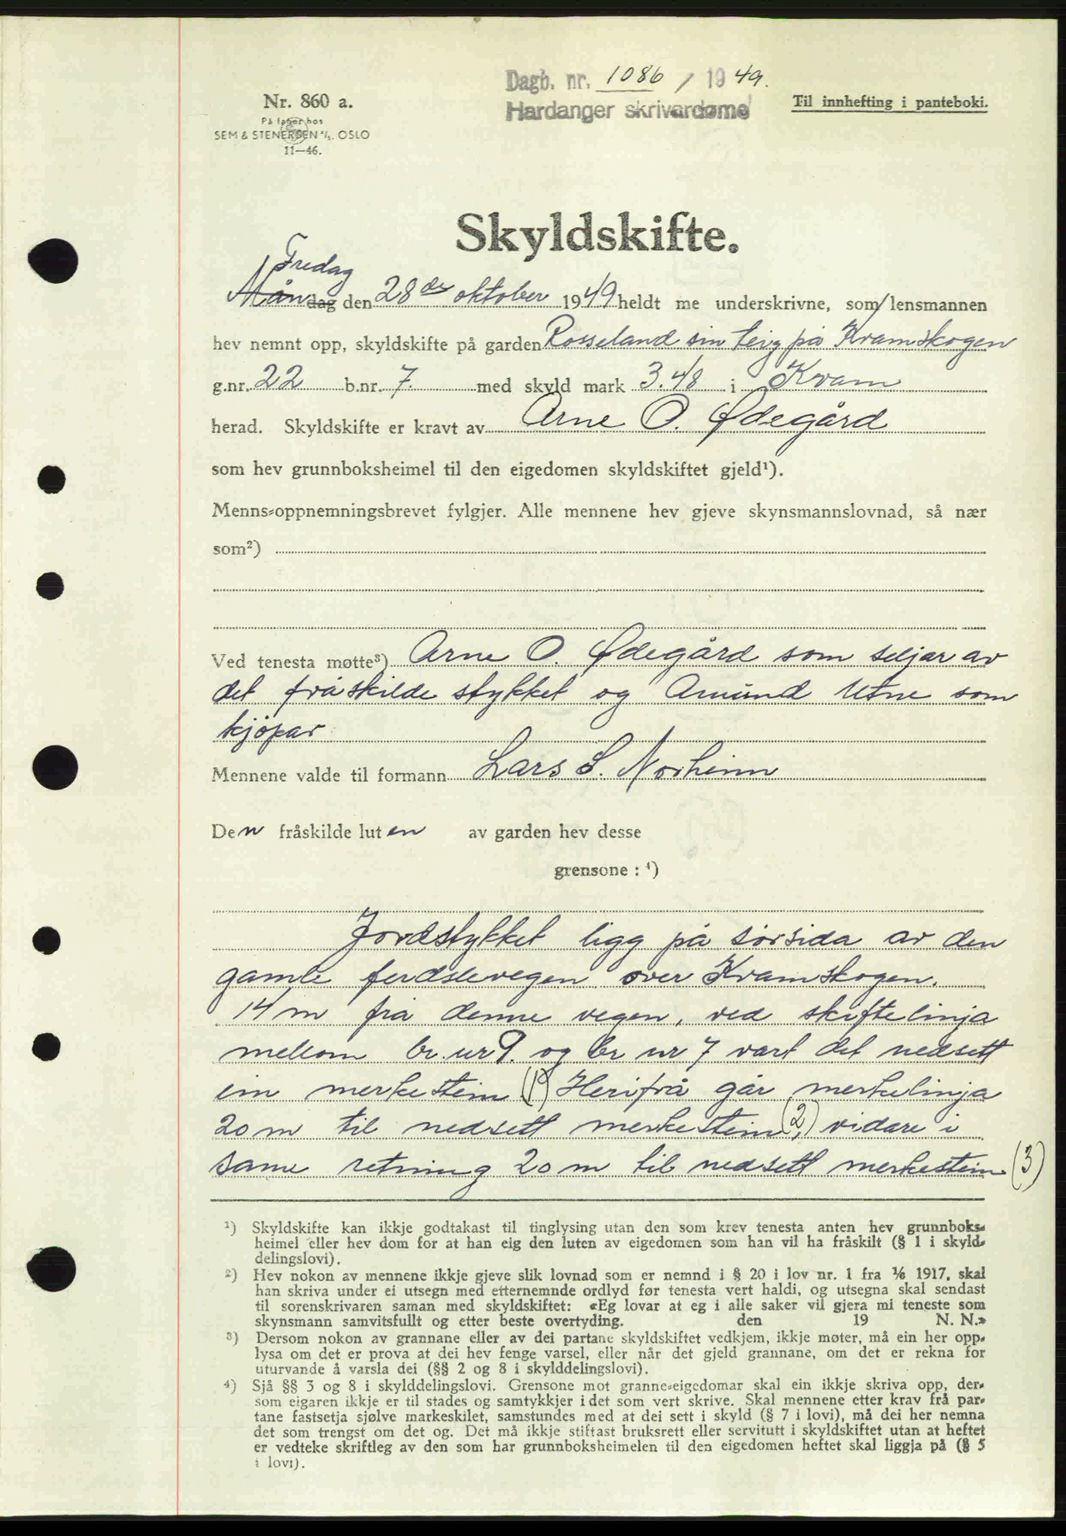 Dagb. nr. 1086 / 1949.
Hardanger skrivardøme
Nr. 860 a.
På lager hos
SEM & STENERSEN A/S. OSLO
11—46.
Til innhefting i panteboki.
Skyldskifte.
Fredag
Måndag den 28de oktober 1949 heldt me underskrivne, som lensmannen
hev nemnt opp, skyldskifte på garden Rosseland sin teig på Kvamskogen
g.nr. 22 b.nr. 7. med skyld mark 3.48 i Kvam
herad. Skyldskifte er kravt av Arne O. Ødegård
som hev grunnboksheimel til den eigedomen skyldskiftet gjeld¹).
Menns-oppnemningsbrevet fylgjer. Alle mennene hev gjeve skynsmannslovnad, så nær
som²)
Ved tenesta møtte³) Arne O. Ødegård som seljar av
det fråskilde stykket og Amund Utne som
kjøpar
Mennene valde til formann Lars S. Norheim
Den fråskilde luten av garden hev desse
grensone : ⁴)
Jordstykket ligg på sørsida av den
gamle ferdslevegen over Kvamskogen.
14 m frå denne vegen, ved skiftelinja
mellom br. nr 9. og br nr 7 vart det nedsett
ein merkestein (1) Herifrå går merkelinja
20 m til nedsett merkestein (2), vidare i
same retning 20 m til nedsett merkestein (3)
¹) Skyldskifte kan ikkje godtakast til tinglysing utan den som krev tenesta anten hev grunnboks-
heimel eller hev dom for at han eig den luten av eigedomen som han vil ha fråskilt (§ 1 i skyld-
delingslovi).
²) Hev nokon av mennene ikkje gjeve slik lovnad som er nemnd i § 20 i lov nr. 1 fra 1/6 1917, skal
han skriva under ei utsegn med etternemnde ordlyd før tenesta vert haldi, og utsegna skal sendast
til sorenskrivaren saman med skyldskiftet: «Eg lovar at eg i alle saker vil gjera mi teneste som
skynsmann samvitsfullt og etter beste overtyding. den 19 N. N.»
³) Dersom nokon av grannane eller av dei partane skyldskiftet vedkjem, ikkje møter, må ein her opp-
lysa om det er prova at dei hev fenge varsel, eller når det gjeld grannane, om det er rekna for
uturvande å varsla dei (§§ 2 og 8 i skylddelingslovi).
⁴) Sjå §§ 3 og 8 i skylddelingslovi. Grensone mot granne-eigedomar skal ein ikkje skriva opp, der-
som eigaren ikkje er til stades og samtykkjer i det som vert skrive. Skal mennene etter krav frå par-
tane fastsetja sjølve markeskilet, samstundes med at dei sett i skyld (§ 7 i lovi), må dei her nemna
det som trengst om det og. Det må ikkje stiftast bruksrett eller servitutt i skyldskiftet utan at heftet
er vedteke skriftleg av den som har grunnboksheimelen til den eigedomen heftet skal liggja på (§ 5
i lovi).